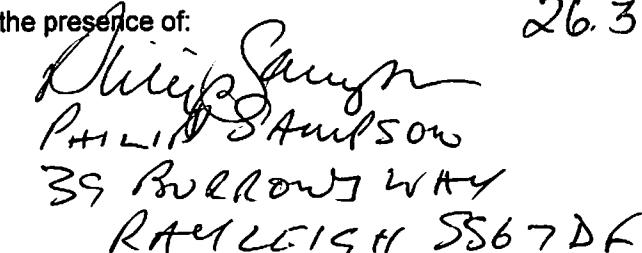 the presence of: 26.3
Philip Sampson
PHILIP SAMPSON
39 BURROWS WAY
RAYLEIGH SS67DF